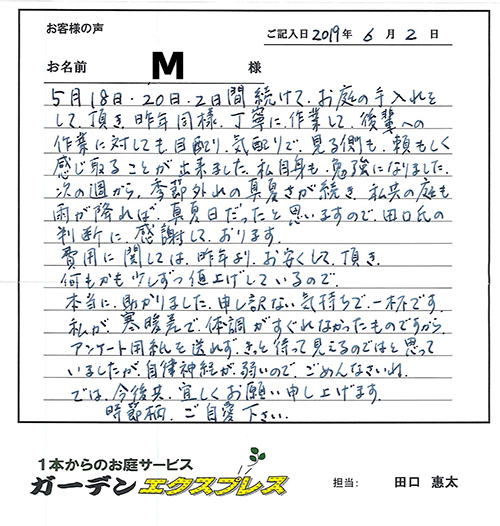 お客様の声
ご記入日 2019年 6月 2日
お名前 M 様
5月18日・20日、2日間続けて、お庭の手入れを
して、頂き、昨年同様、丁寧に、作業して、後輩への
作業に対しても目配り、気配りで、見る側も、頼もしく
感じ取ることが出来ました。私自身も、勉強になりました。
次の週から、季節外れの真夏さが続き、私共の庭も
雨が降れば、真夏日だったと思いますので、田口氏の
判断に、感謝して、おります。
費用に関しては、昨年より、お安くして、頂き、
何もかも少しずつ値上げしているので、
本当に、助かりました。申し訳ない気持ちで、一杯です
私が、寒暖差で、体調がすぐれなかったものですから、
アンケート用紙を送れず、きっと待って見えるのではと思って
いましたが、自律神経が、弱いので、ごめんなさいね。
では、今後共、宜しくお願い申し上げます。
時節柄、ご自愛下さい。
1本からのお庭サービス
ガーデンエクスプレス
担当: 田口 惠太